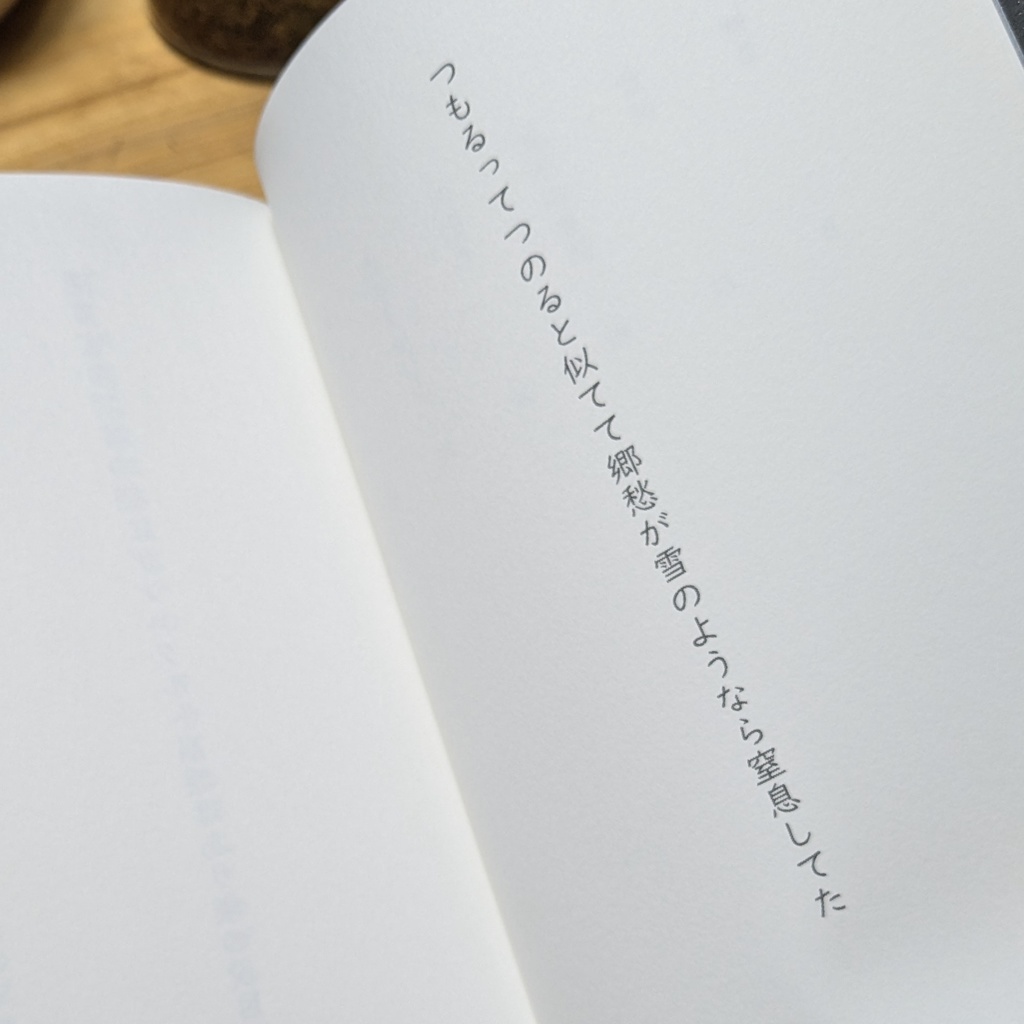 つもるってつのると似てて郷愁が雪のようなら窒息してた